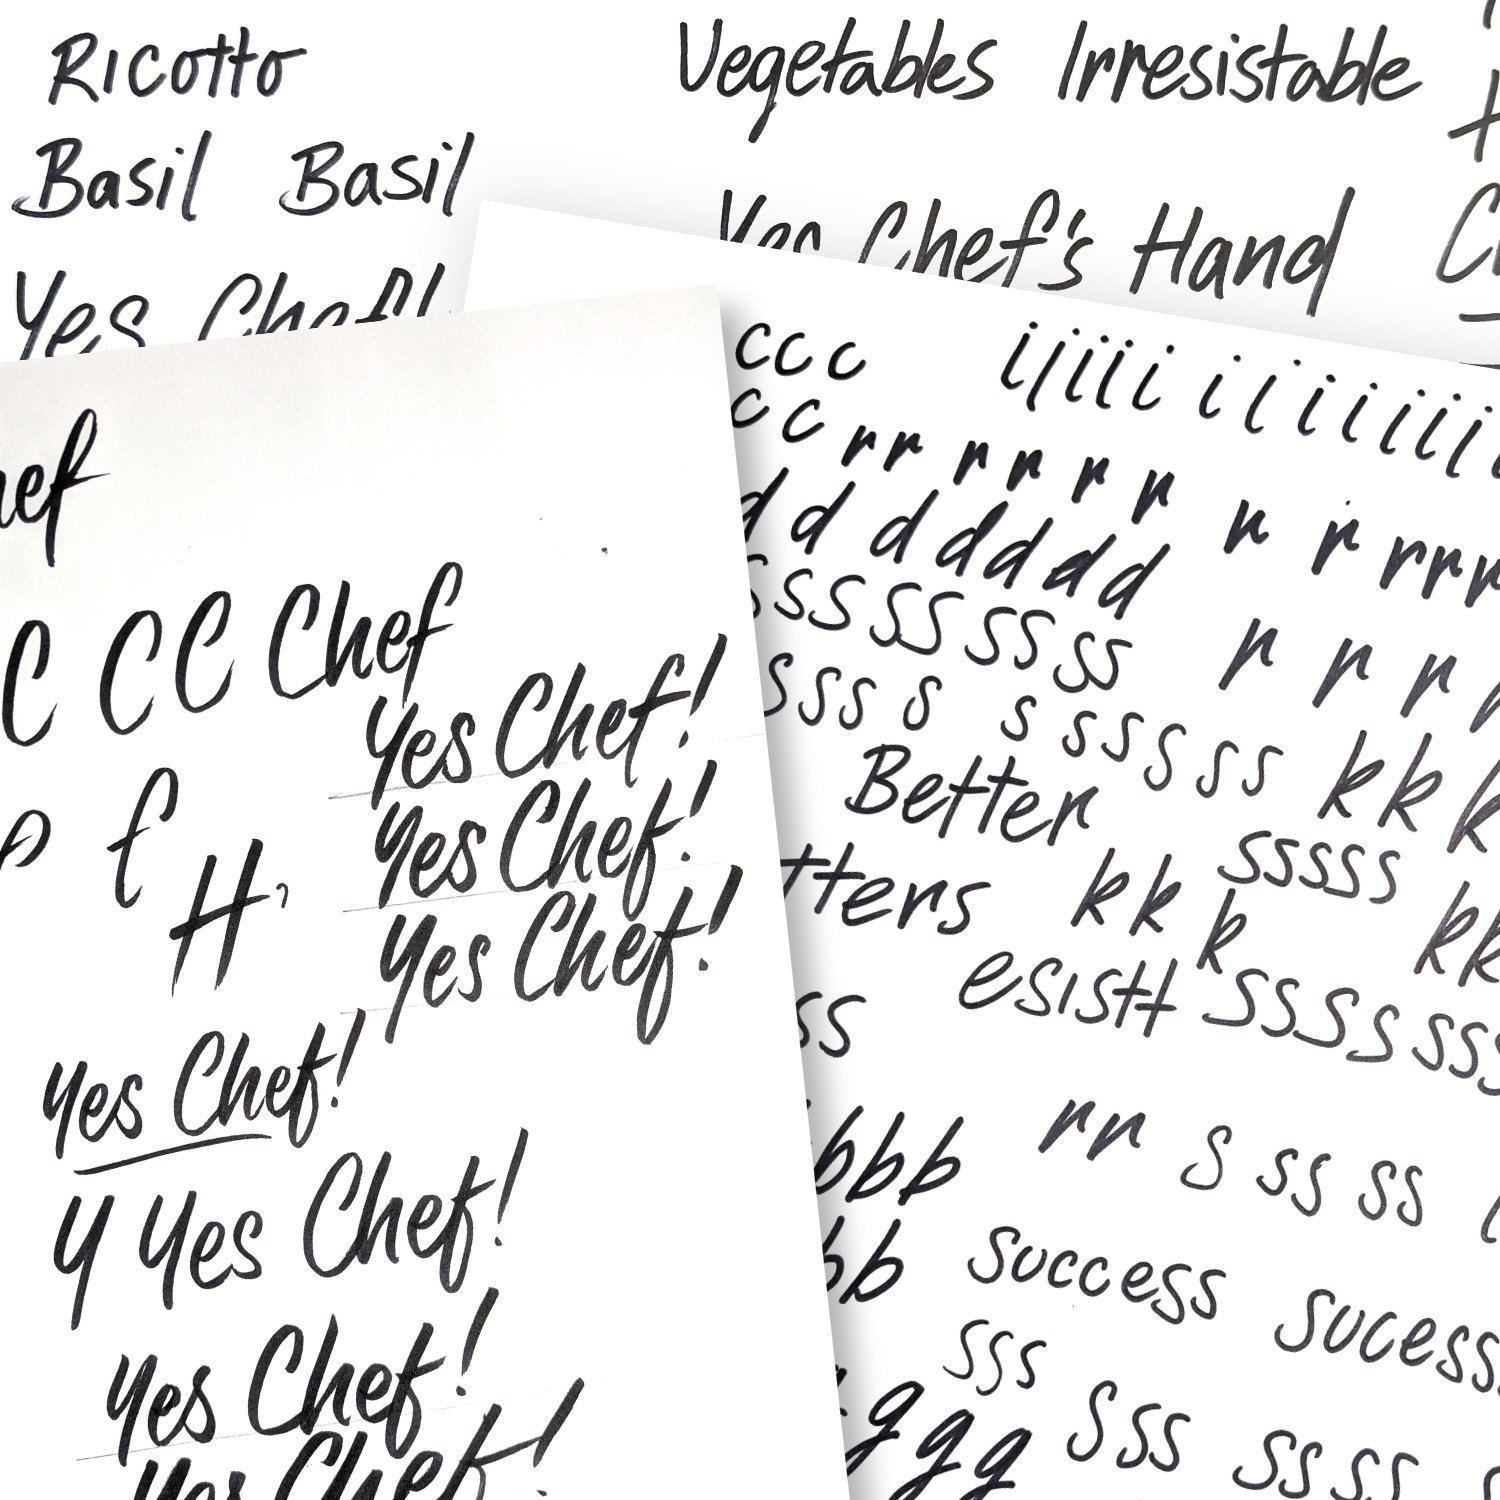 Ricotto
Basil Basil
Yes Chef!
Vegetables Irresistable
Yes Chef's Hand
Chef
C C C Chef
Yes Chef!
Yes Chef!
Yes Chef!
f
H
Yes Chef!
y Yes Chef!
Yes Chef!
Yes Chef!
c c c i i i i i i i i i i i i i
c c r r r r r r r r r r r
d d d d d d d
s s s s s s s s s r r r r
s s s s s s s s s s s k k k
Better
s s s s s
tters k k k k k
esistt s s s s s s s
ss
b b b r r s s s s s
b b success sucess
s s s
g g g s s s s s s s